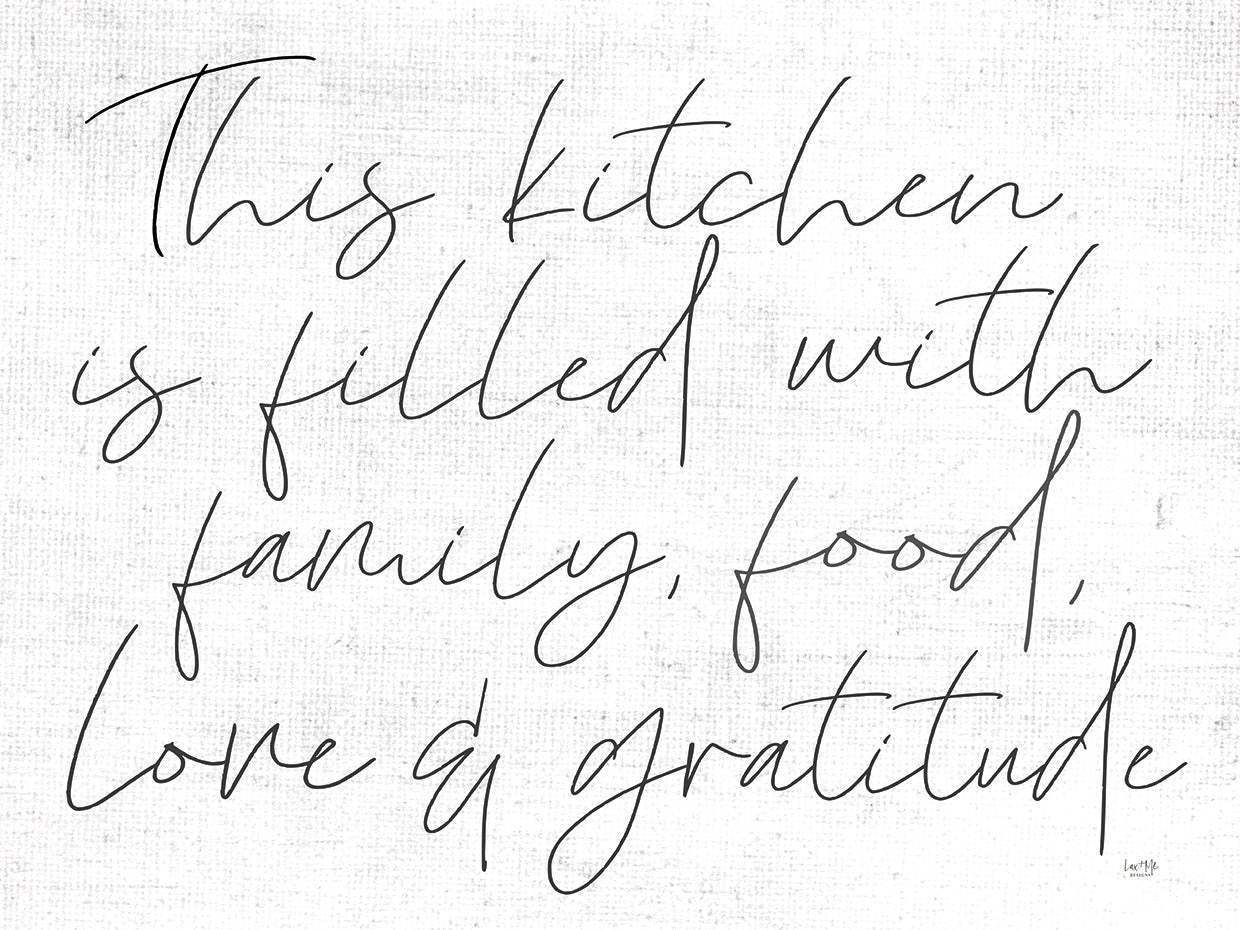 This kitchen
is filled with
family, food,
love & gratitude
Lux + Me
DESIGNS